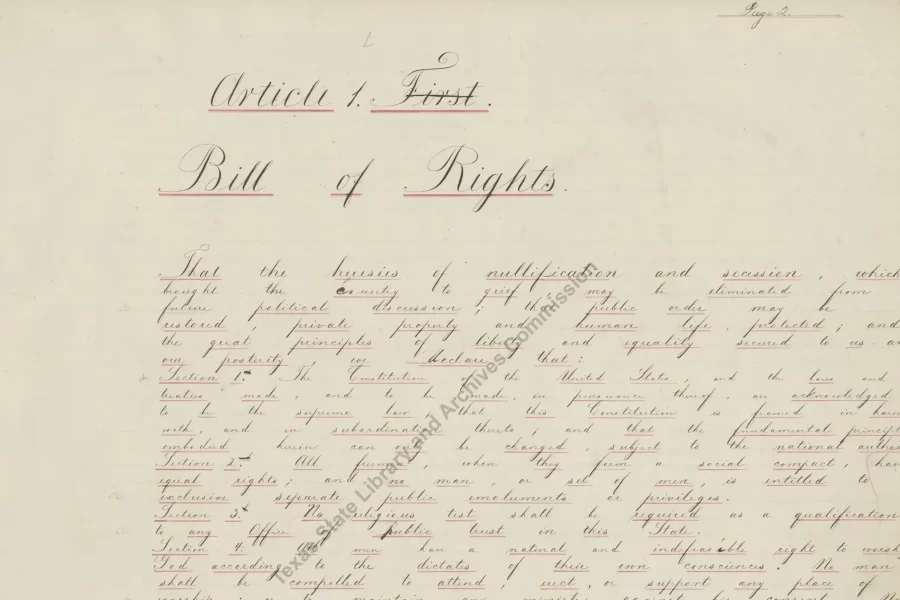 Page 2.
Article 1. First.
Bill of Rights.
That the heresies of nullification and secession, which
bought the country to grief may be eliminated from
future political discussion; that public order may be
restored, private property and human life protected; and
the great principles of liberty and equality secured to us
our posterity, we declare that:
Section 1. The Constitution of the United States, and the laws and
treaties made, and to be made, in pursuance thereof, are acknowledged
to be the supreme law that this Constitution is framed in
with, and in subordination thereto; and that the fundamental
embodied herein can only be changed, subject to the national
Section 2. All freemen, when they form a social compact, have
equal rights; and no man, or set of men, is entitled to
exclusive separate public emoluments or privileges.
Section 3. No religious test shall be required as a qualification
to any Office public trust in this State.
Section 4. All men have a natural and indefeasible right to
God according to the dictates of their own consciences. No man
shall be compelled to attend, erect, or support any place of
to maintain any against his consent. No
Texas State Library and Archives Commission